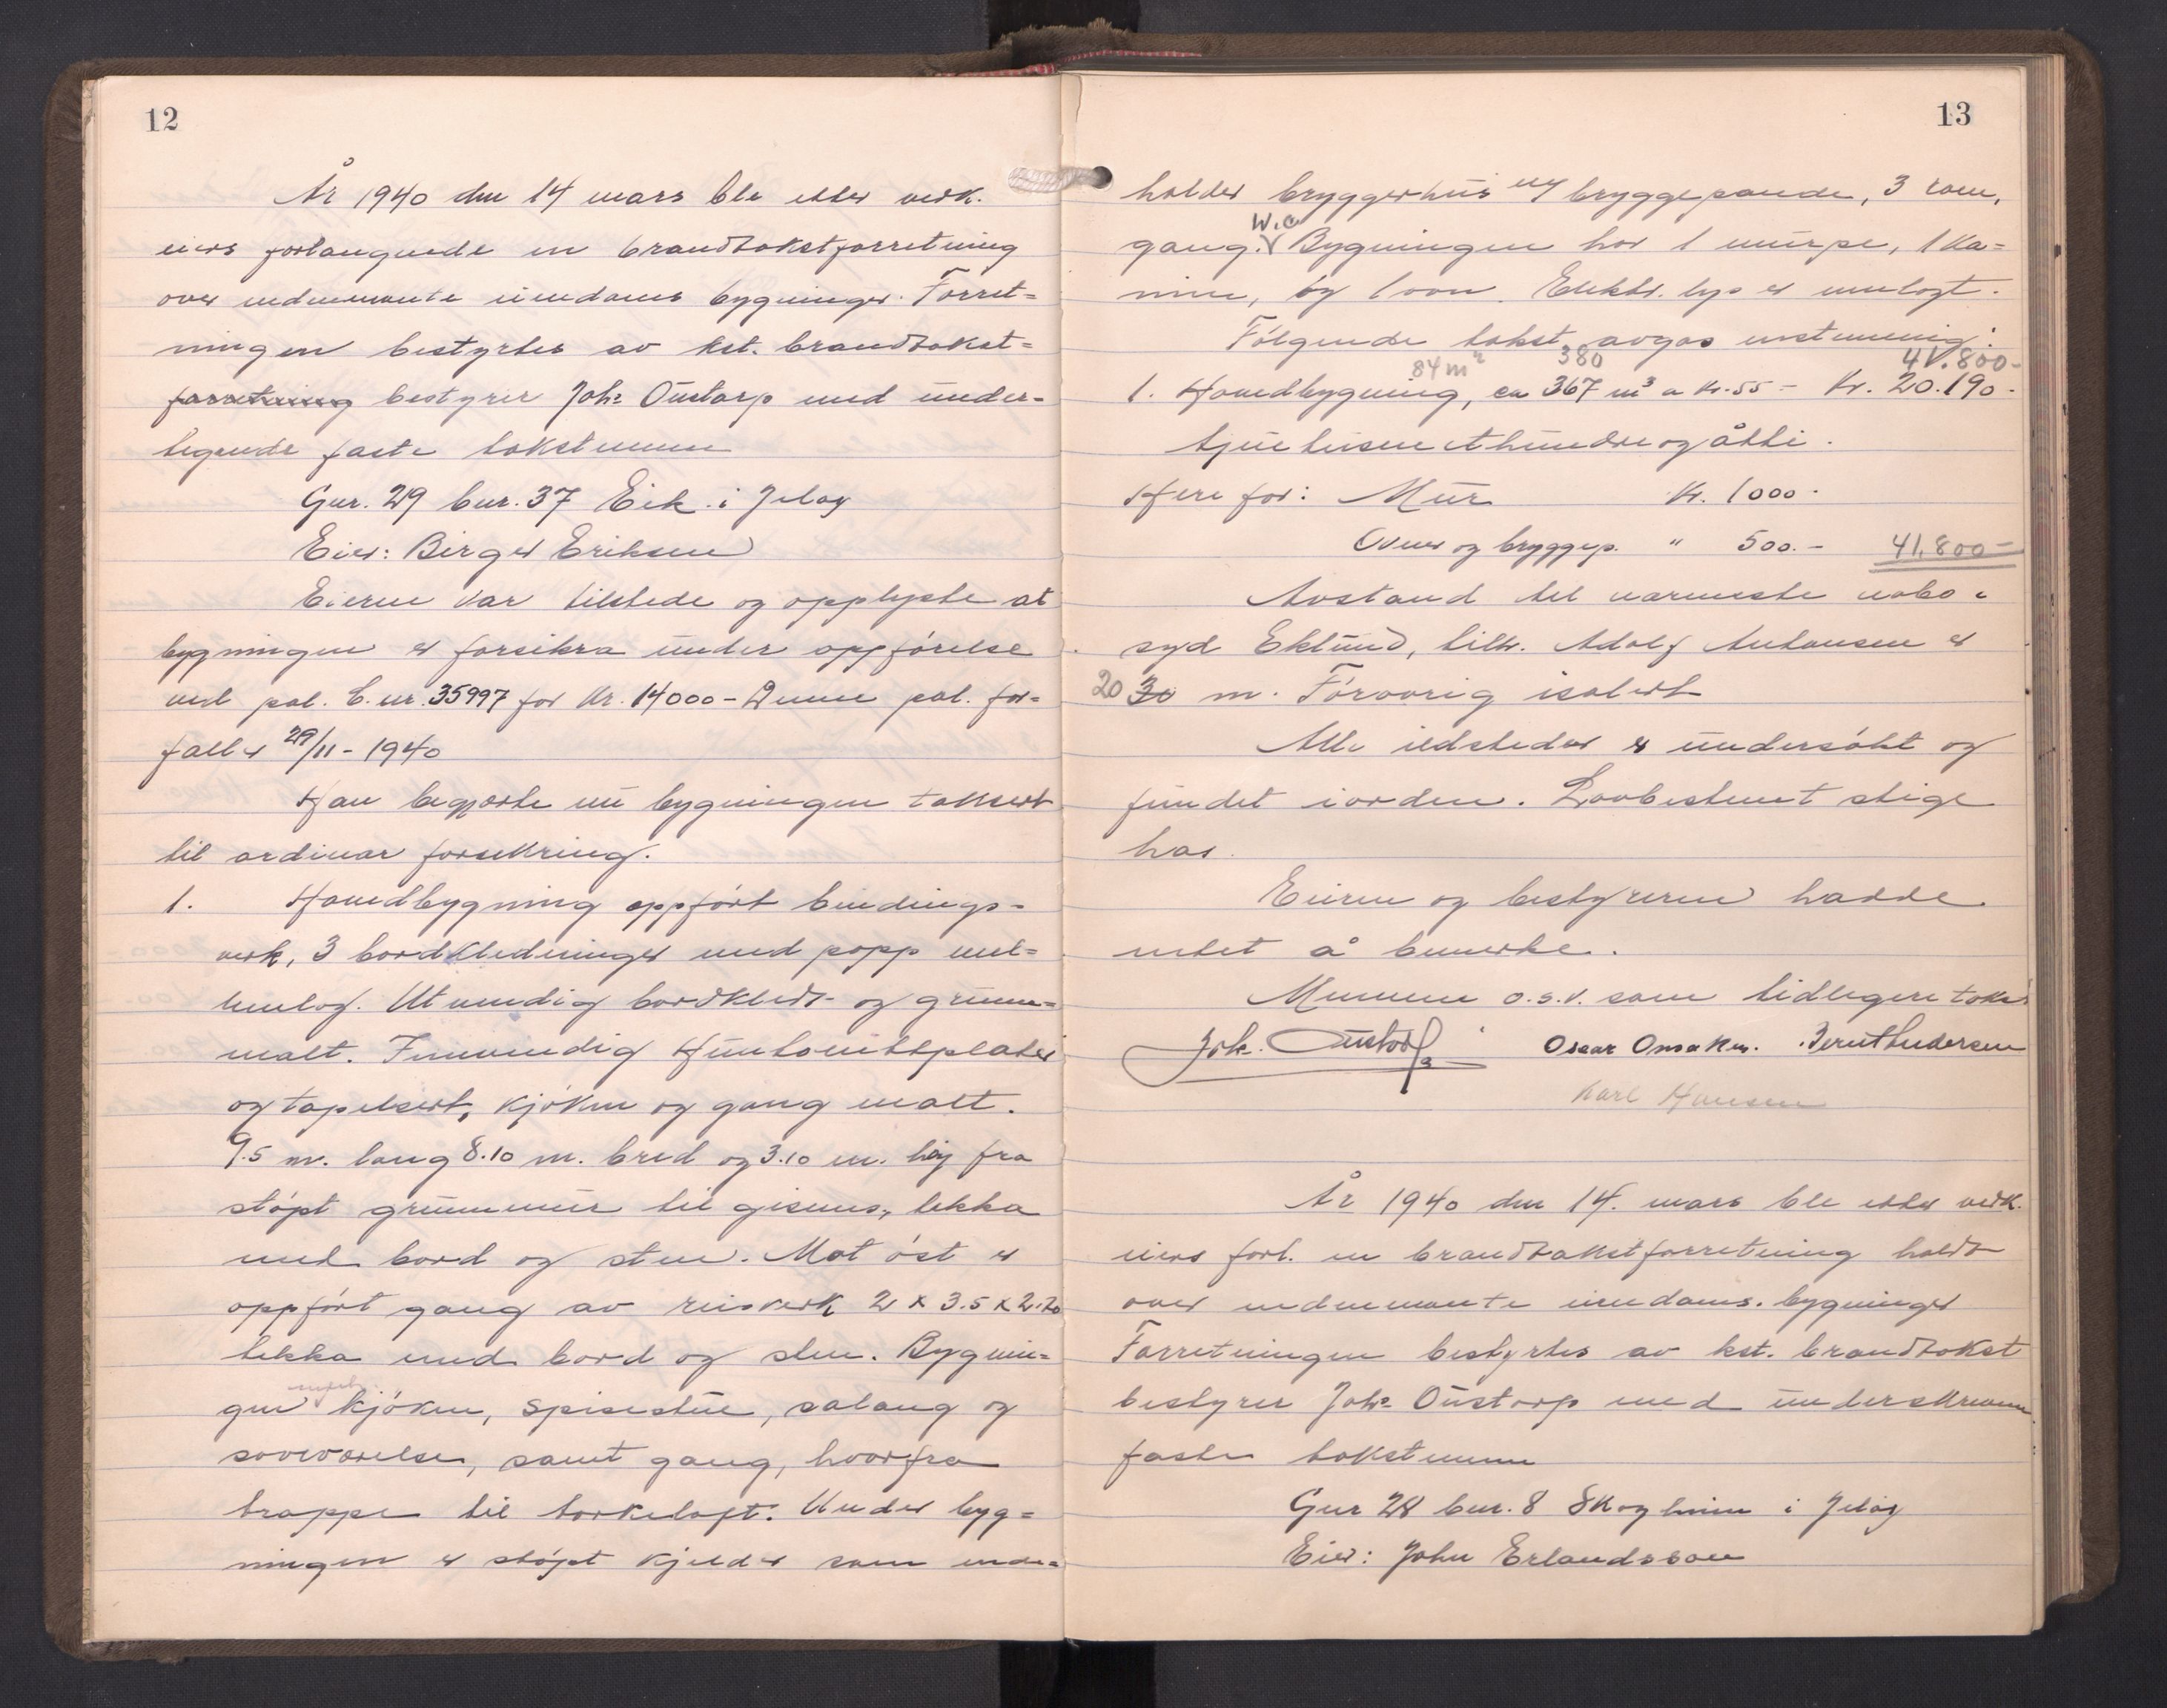 12
År 1940 den 14 mars ble etter vedk.
eiers forlangende en brandtakstforretning
over nedennevnte eiendoms bygninger. Forret=
ningen bestyrtes av kst. brandtakst=
forretning bestyrer Johs Oustorp med under-
tegnede faste takstmenn
Gnr. 29 bnr. 37 Eik i Jeløy
Eier: Birger Eriksen
Eieren var tilstede og opplyste at
bygningen er forsikra under oppførelse
ved pol. C. nr. 35997 for kr. 14000- Denne pol. for=
faller 29/11 - 1940
Han begjærte nu bygningen taksert
til ordinær forsikring.
1. Hovedbygning oppført bindings-
verk, 3 bordkledninger med papp mel=
lemlag. Utvendig bordkledt og grunn=
malt. Innvendig Huntonittplater
og tapetsert, kjøken og gang malt.
9.5 m. lang 8.10 m. bred og 3.10 m. høj fra
støpt grunnmur til gisims, tekka
med bord og sten. Mot øst er
oppført gang av reisverk 2 x 3.5 x 2.20
tekka med bord og sten. Bygnin=
gen kjøken, spisestue, salong og
soveværelse, samt gang, hvorfra
trappe til tørkeloft. Under byg=
ningen er støpt kjelder som inde=
13
holder bryggerhus m/ bryggepande, 3 rom,
W.C
gang. Bygningen har 1 murpe, 1 ka=
min, og 1 ovn. Elektr. lys er innlagt.
Følgende takst avgas enstemmig:
84 m² 380 41.800-
1. Hovedbygning, ca 367 m³ a kr. 55 - Kr. 20.190.
tjuetusenethundreogåtti.
Herefor: Mur Kr. 1000.
Ovner og bryggep. " 500.- 41.800-
Avstand til nærmeste nabo i
syd Eklund, tilh. Adolf Antonsen er
20 30 m. Førøvrig isolert
Alle ildsteder er undersøkt og
fundet iorden. Lovbestemt stige
has.
Eieren og bestyreren hadde
intet å bemerke.
Mennene o.s.v. som tidligere takst
Joh. Oustorp Oscar Onsaker. Bernt Andersen
Karl Hansen
År 1940 den 14. mars ble etter vedk.
eiers forl. en brandtakstforretning holdt
over nedennevnte eiendoms. bygninger
Forretningen bestyrtes av kst. brandtakst
bestyrer Johs Oustorp med underskrevne
faste takstmenn
Gnr 28 bnr. 8 Skogheim i Jeløy
Eier: John Erlandsson